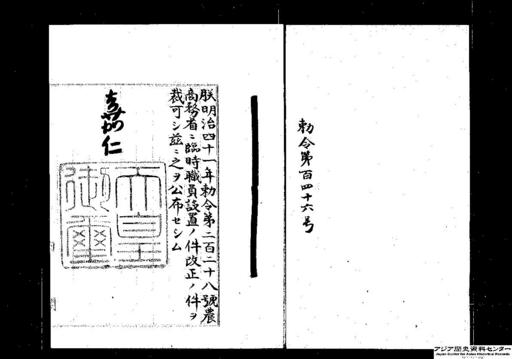 勅令第百四十六号
朕明治四十一年勅令第二百二十八號農
商務省ニ臨時職員設置ノ件改正ノ件ヲ
裁可シ茲ニ之ヲ公布セシム
嘉仁
天皇
御璽
アジア歴史資料センター
Japan Center for Asian Historical Records